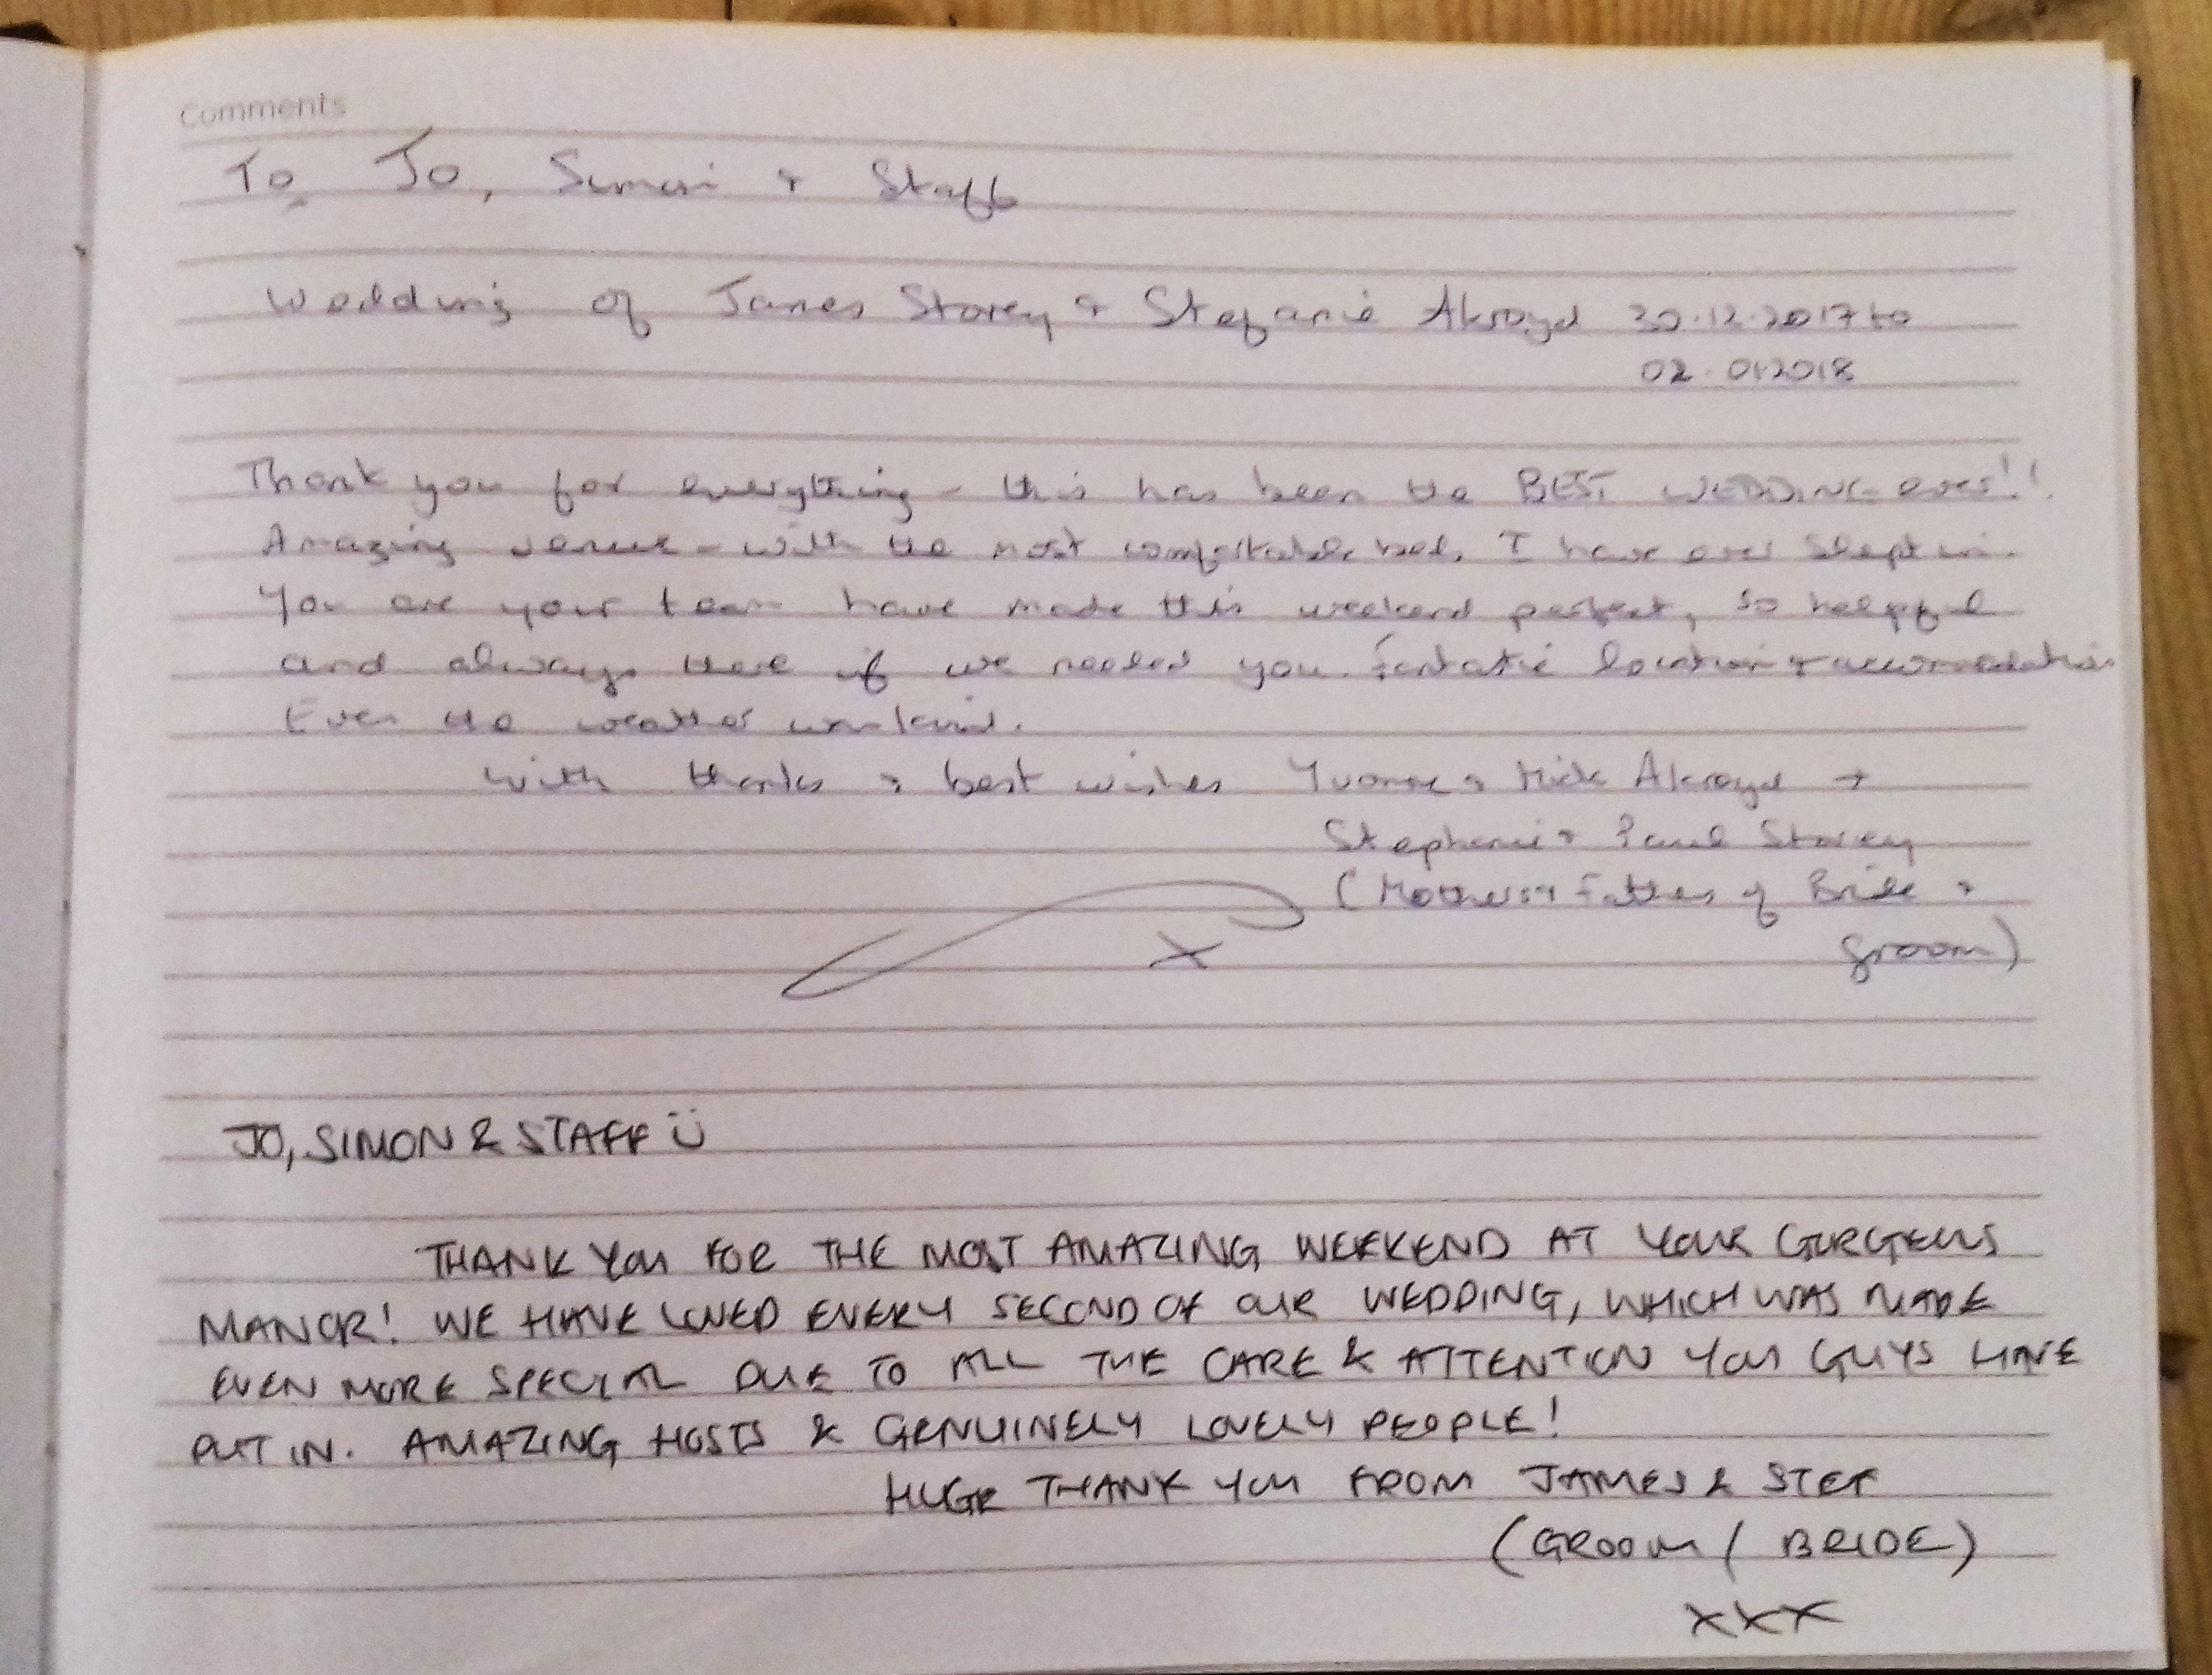 Comments
To Jo, Simon + Staff
Wedding of James Storey + Stefanie Akroyd 30.12.2017 to
02.01.2018
Thank you for everything - this has been the BEST WEDDING ever!!
Amazing venue - with the most comfortable bed, I have ever slept in.
You are your team have made this weekend perfect, so helpful
and always there if we needed you. Fantatic location + accomodation
Even the weather was kind.
With thanks + best wishes Yvonne + Mick Akroyd +
Stephanie + Paul Storey
(Mothers + Fathers of Bride +
groom)
X
JO, SIMON & STAFF Ü
THANK YOU FOR THE MOST AMAZING WEEKEND AT YOUR GORGEOUS
MANOR! WE HAVE LOVED EVERY SECOND OF OUR WEDDING, WHICH WAS MADE
EVEN MORE SPECIAL DUE TO ALL THE CARE & ATTENTION YOU GUYS HAVE
PUT IN. AMAZING HOSTS & GENUINELY LOVELY PEOPLE!
HUGE THANK YOU FROM JAMES & STEF
(GROOM / BRIDE)
XXX